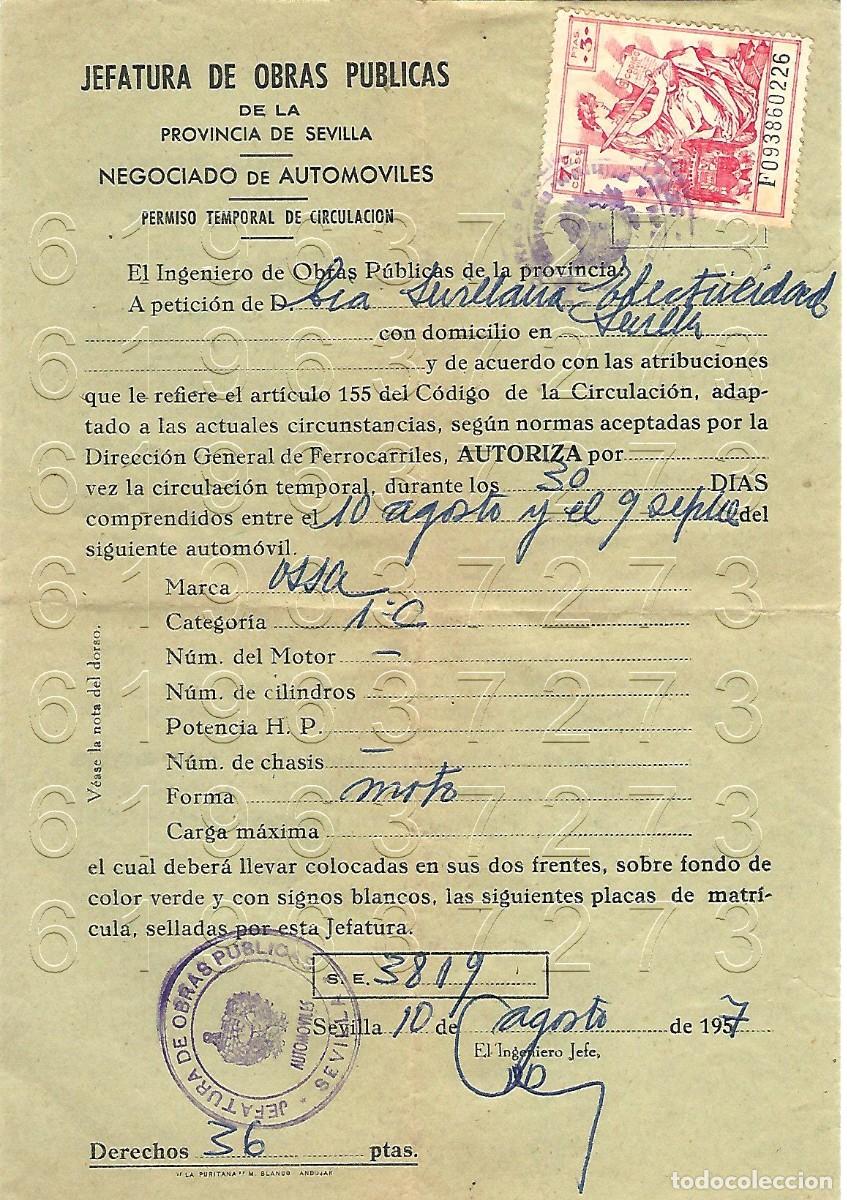 JEFATURA DE OBRAS PUBLICAS
DE LA
PROVINCIA DE SEVILLA
NEGOCIADO DE AUTOMOVILES
PERMISO TEMPORAL DE CIRCULACION
PTAS 3
7ª CLASE
F093860226
El Ingeniero de Obras Públicas de la provincia:
A petición de D. Cia Sevillana Electricidad
con domicilio en Sevilla
y de acuerdo con las atribuciones
que le refiere el artículo 155 del Código de la Circulación, adap-
tado a las actuales circunstancias, según normas aceptadas por la
Dirección General de Ferrocarriles, AUTORIZA por
vez la circulación temporal, durante los 30 DIAS
comprendidos entre el 10 agosto y el 9 septbre del
siguiente automóvil.
Marca OSSA
Categoría 1ª C
Núm. del Motor —
Núm. de cilindros
Potencia H. P.
Núm. de chasis —
Forma moto
Carga máxima
Véase la nota del dorso.
el cual deberá llevar colocadas en sus dos frentes, sobre fondo de
color verde y con signos blancos, las siguientes placas de matrí-
cula, selladas por esta Jefatura.
S. E. 3819
JEFATURA DE OBRAS PUBLICAS * SEVILLA *
AUTOMOVILES
Sevilla 10 de agosto de 1957
El Ingeniero Jefe,
Derechos 36 ptas.
"LA PURITANA" M. BLANCO ANDUJAR
619637273
619637273
619637273
619637273
619637273
619637273
619637273
todocoleccion